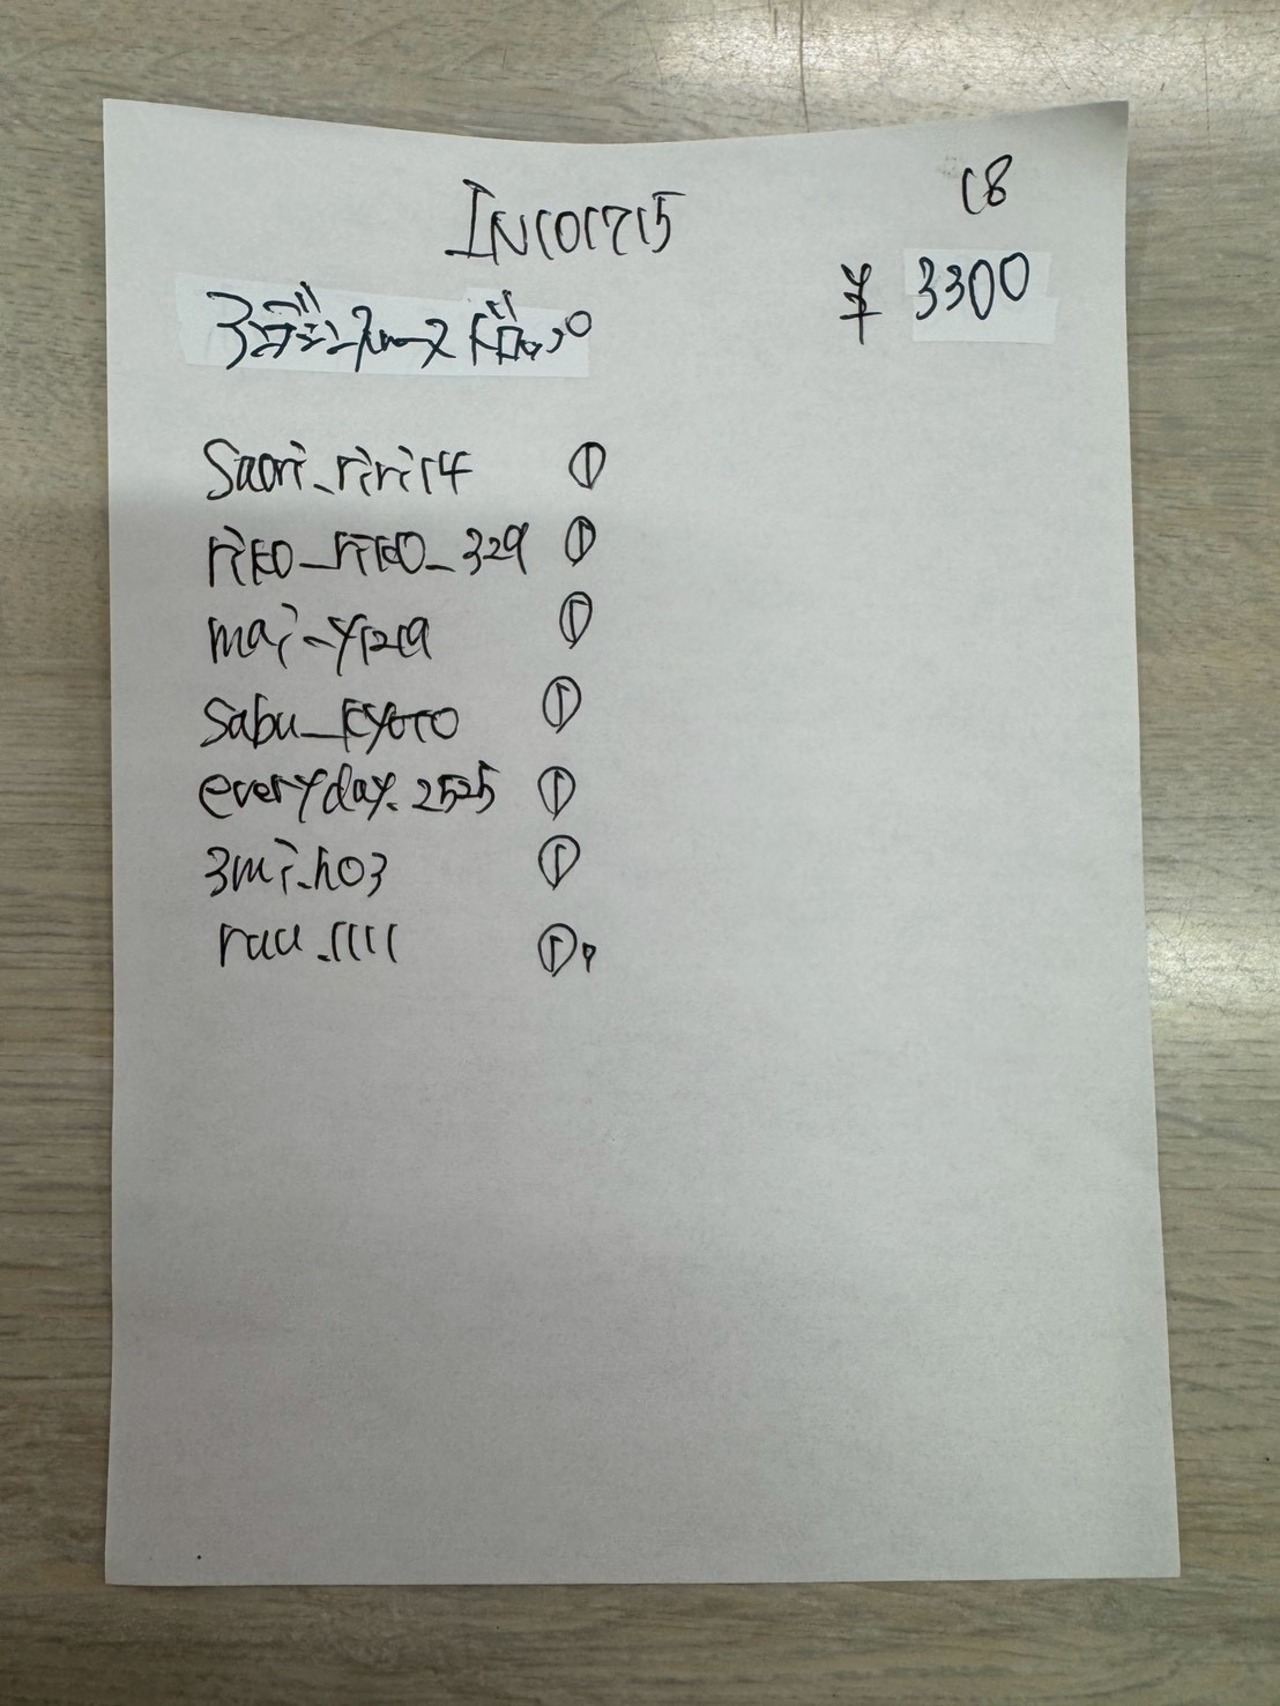 18
IN101715
¥ 3300
3デニスルーズ
Saori_riri14 ①
riko_riko_329 ①
mai_y1219 ①
Sabu_kyoto ①
everyday.2525 ①
3mi.ho3 ①
ruu.1111 ①